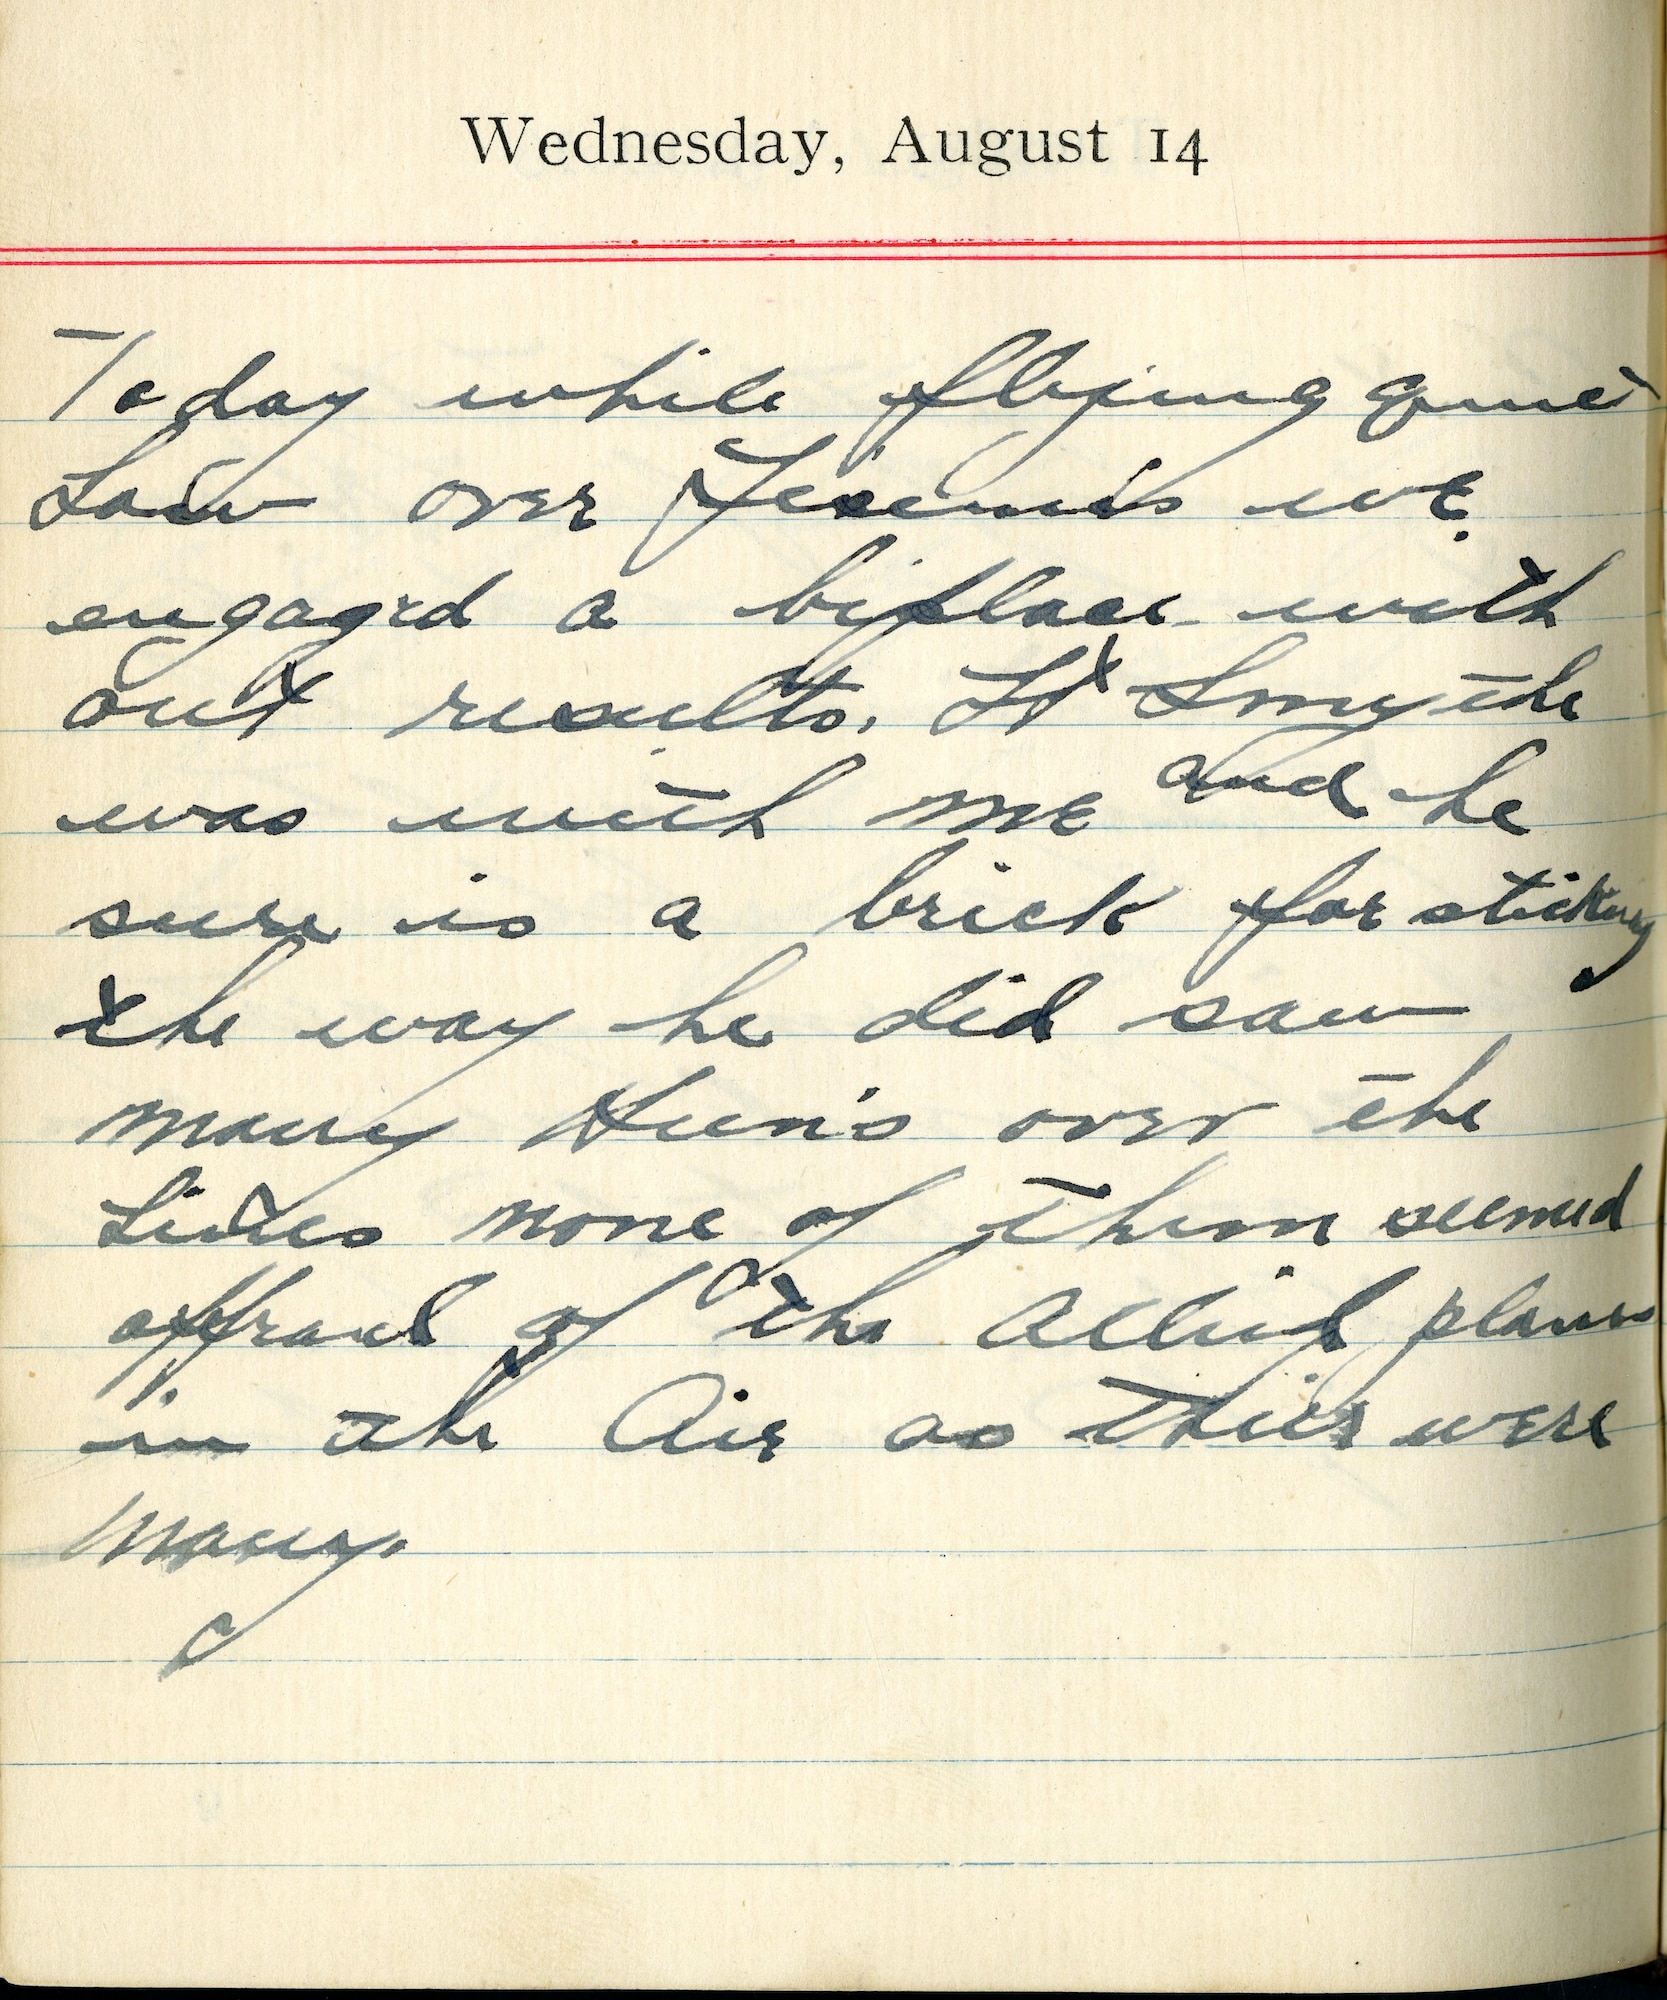 Wednesday, August 14
Today while flying
Low over we
engaged a biplace with
out results. Lt Smythe
was with me and he
sure is a brick for sticking
the way he did saw
many Hun's over the
Lines none of them seemed
affraid of the Allied planes
in the Air as thier were
many.